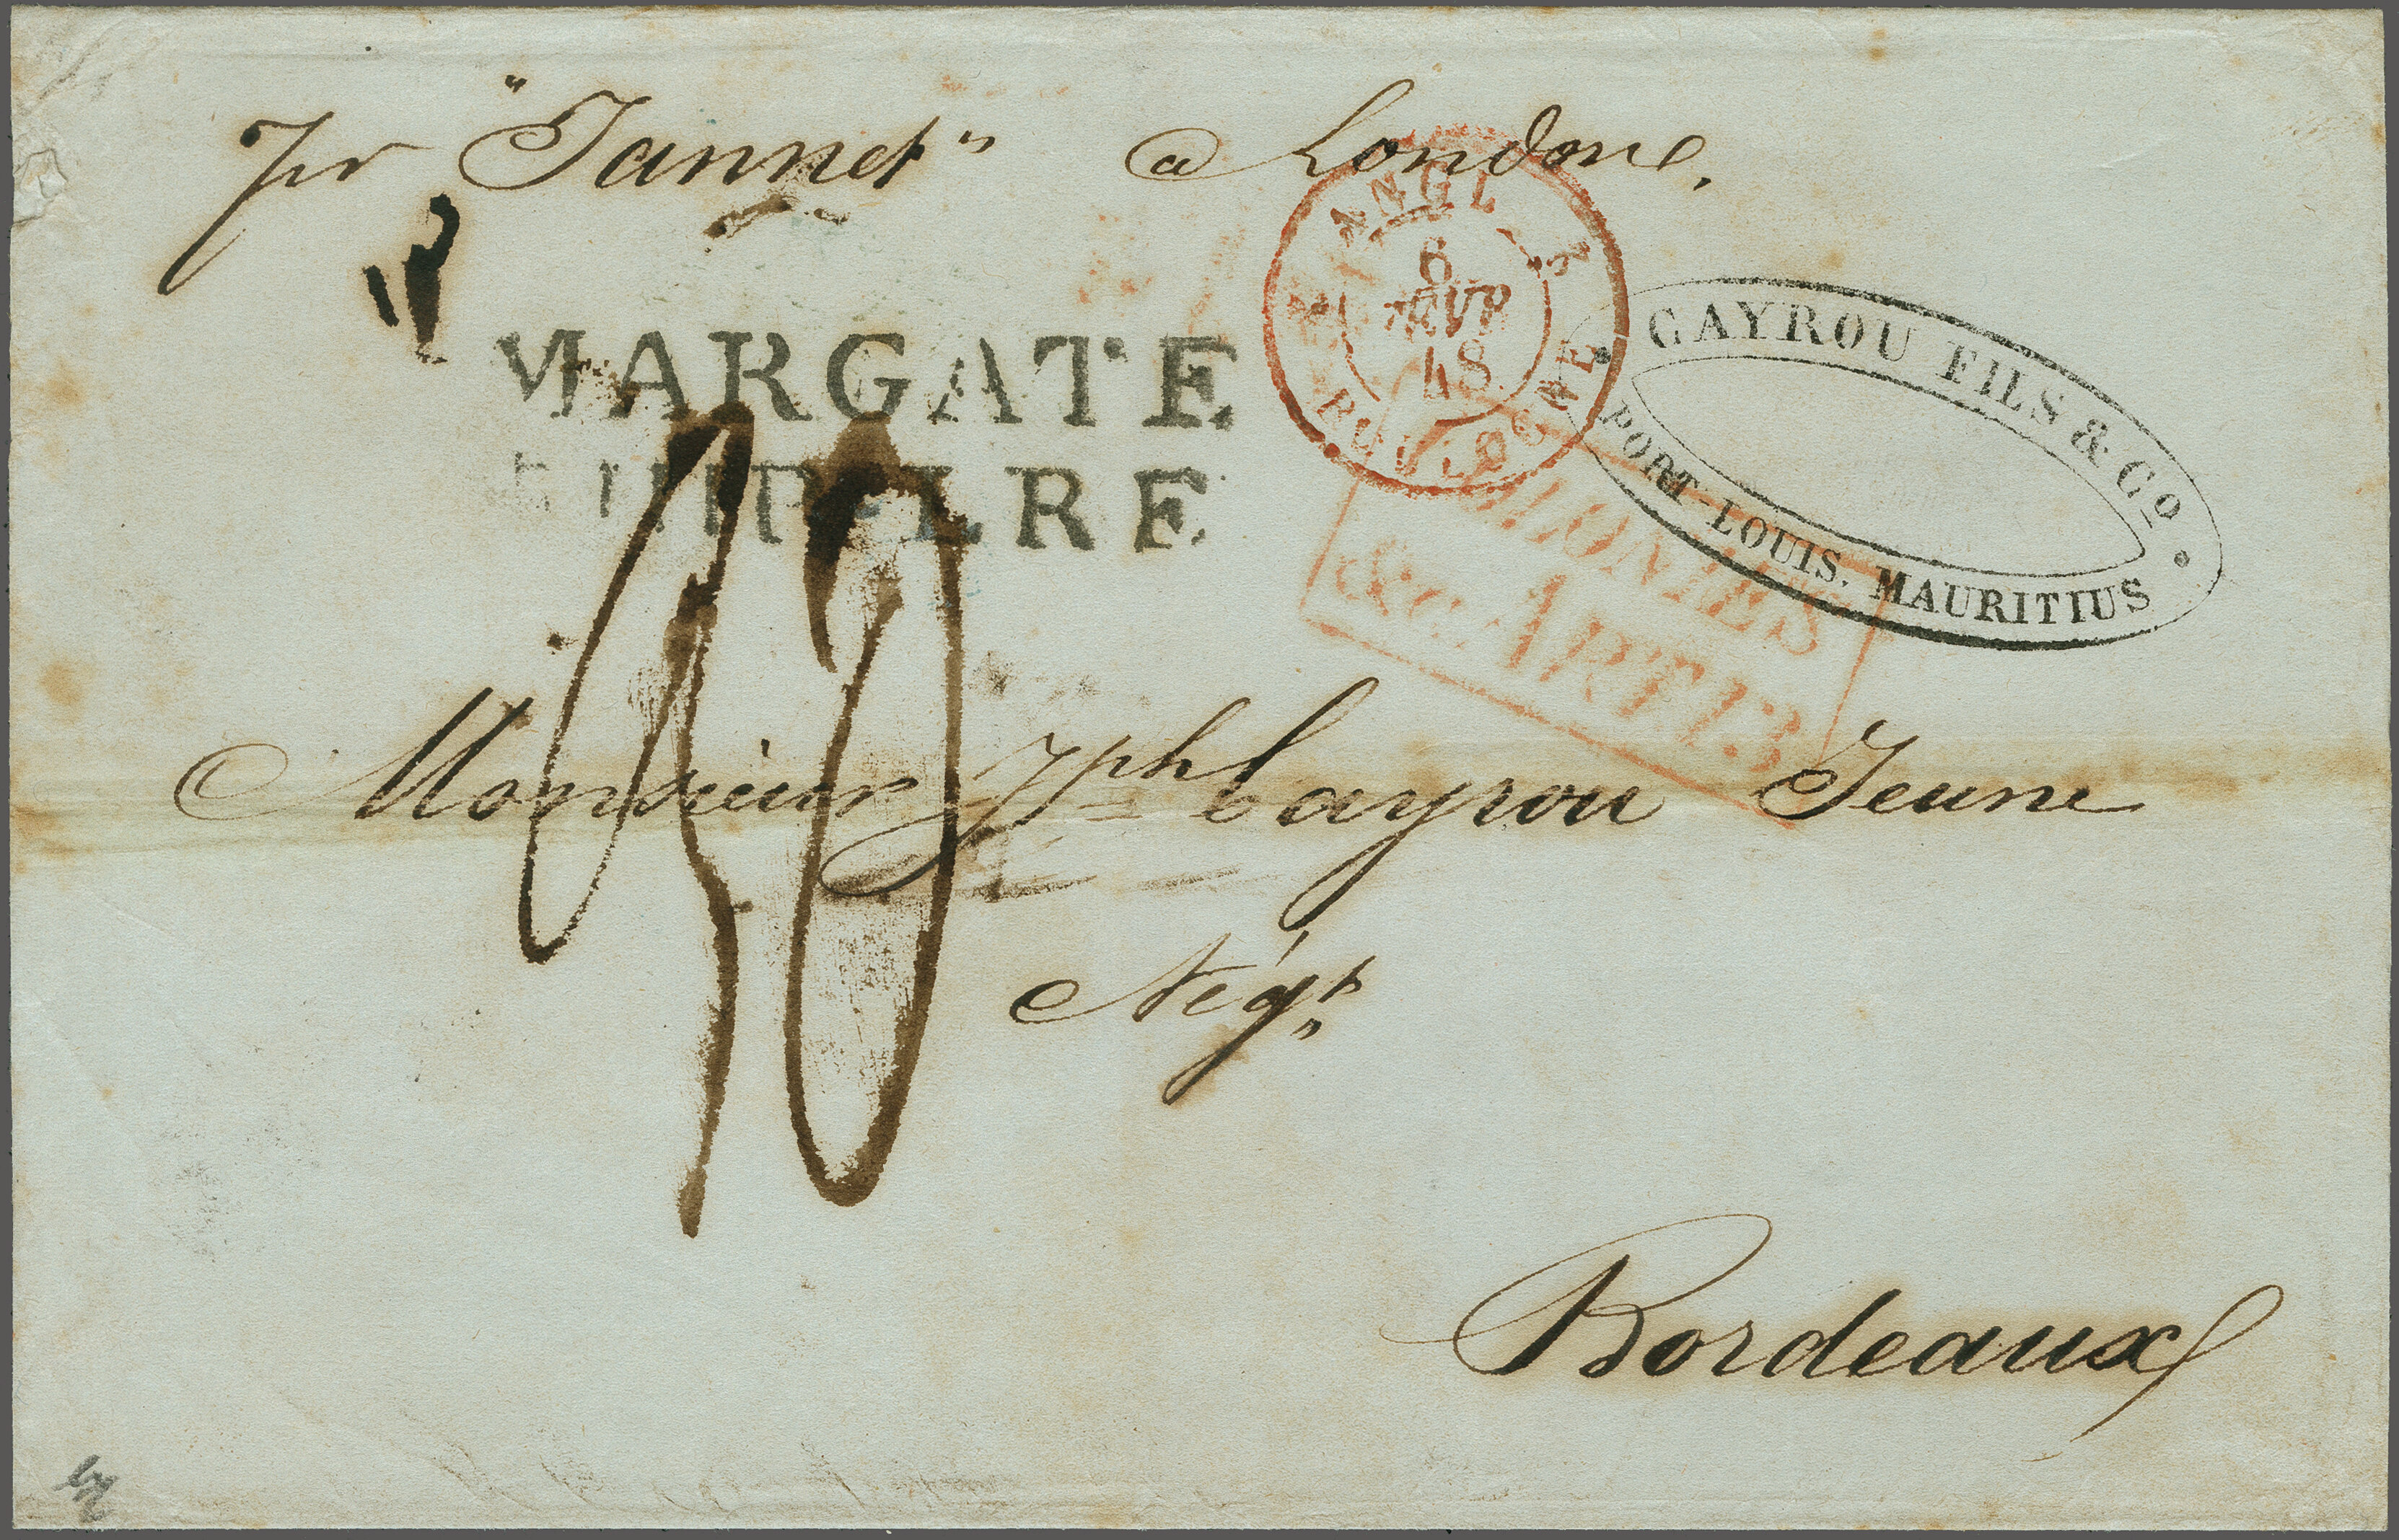 pr "Jannet" a Londres.
MARGATE
SHIP LRE
ANGL.
2
6
AVR
48
BOULOGNE
CAYROU FILS & Co
PORT-LOUIS. MAURITIUS
COLONIES
&c. ART 13
Monsieur Jph Cayrou Jeune
Négt
Bordeaux